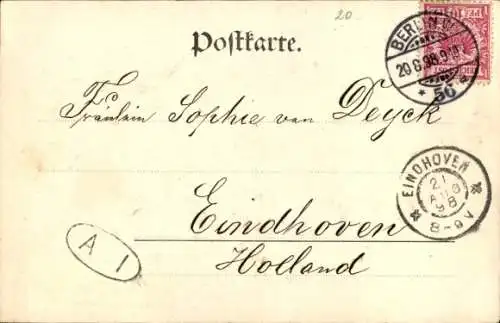 20
Postkarte.
BERLIN W.
20.8.98.9-10
* 56 a
Fräulein Sophie van Deyck
EINDHOVEN
21
AUG
98
8-9V
Eindhoven
Holland
A I